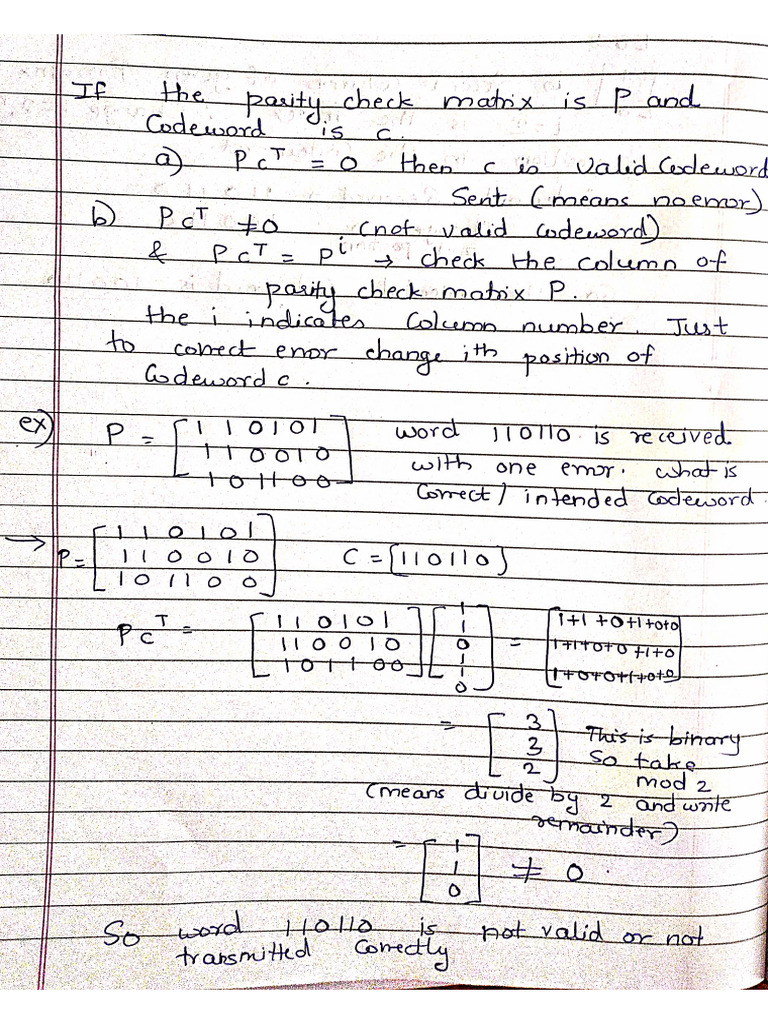 If the parity check matrix is P and
Codeword is c.
a) PcT = 0 then c is valid Codeword
Sent (means no error)
b) PcT ≠ 0 (not valid codeword)
& PcT = Pi → check the column of
parity check matrix P.
the i indicates Column number. Just
to correct error change ith position of
Codeword c.
ex) P = [1 1 0 1 0 1 word 110110 is received
1 1 0 0 1 0 with one error. what is
1 0 1 1 0 0] Correct/ intended codeword.
→ P = [1 1 0 1 0 1
1 1 0 0 1 0 C = [110110]
1 0 1 1 0 0]
PcT = [1 1 0 1 0 1 [1 [1+1+0+1+0+0
1 1 0 0 1 0 1 0 = 1+1+0+0+1+0
1 0 1 1 0 0] 1 1 0] 1+0+0+1+0+0]
= [3 This is binary
3 So take
2] mod 2
(means divide by 2 and write
remainder)
= [1 1 0] ≠ 0.
So word 110110 is not valid or not
transmitted Correctly